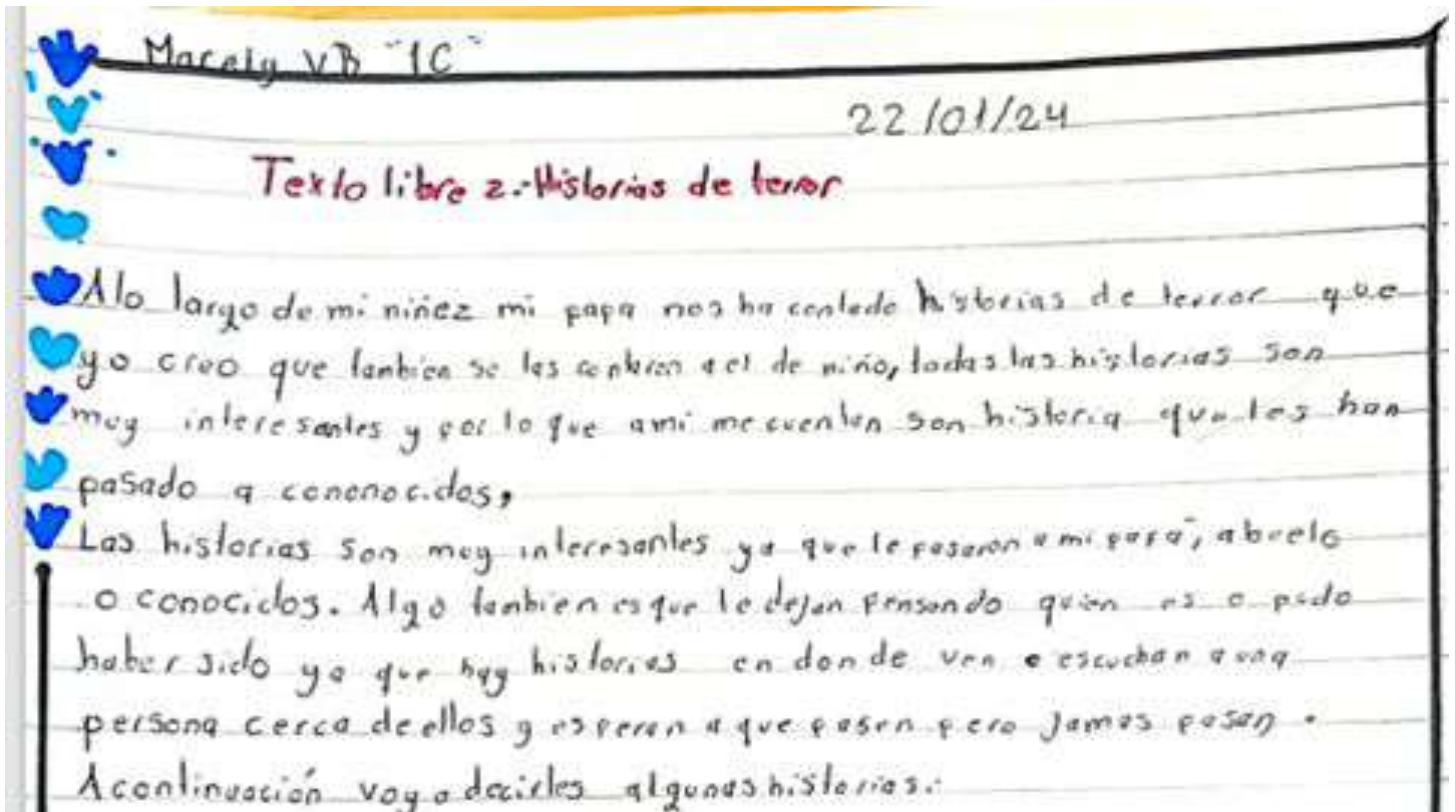 Macely VB "1C"
22/01/24
Texto libre 2.- Historias de terror
Alo largo de mi niñez mi papa nos ha contado historias de terror que
yo creo que tanbien se las contaron a el de niño, todas las historias son
muy interesantes y por lo que ami me cuentan son historia que les han
pasado a cononocidos,
Las historias son muy interesantes ya que le pasaron a mi papá, abuelo
o conocidos. Algo tanbien es que te dejan pensando quien es o pudo
haber sido ya que hay historias en donde ven o escuchan a una
persona cerca de ellos y esperan a que pasen pero jamas pasan.
Acontinuación voy a decirles algunas historias: